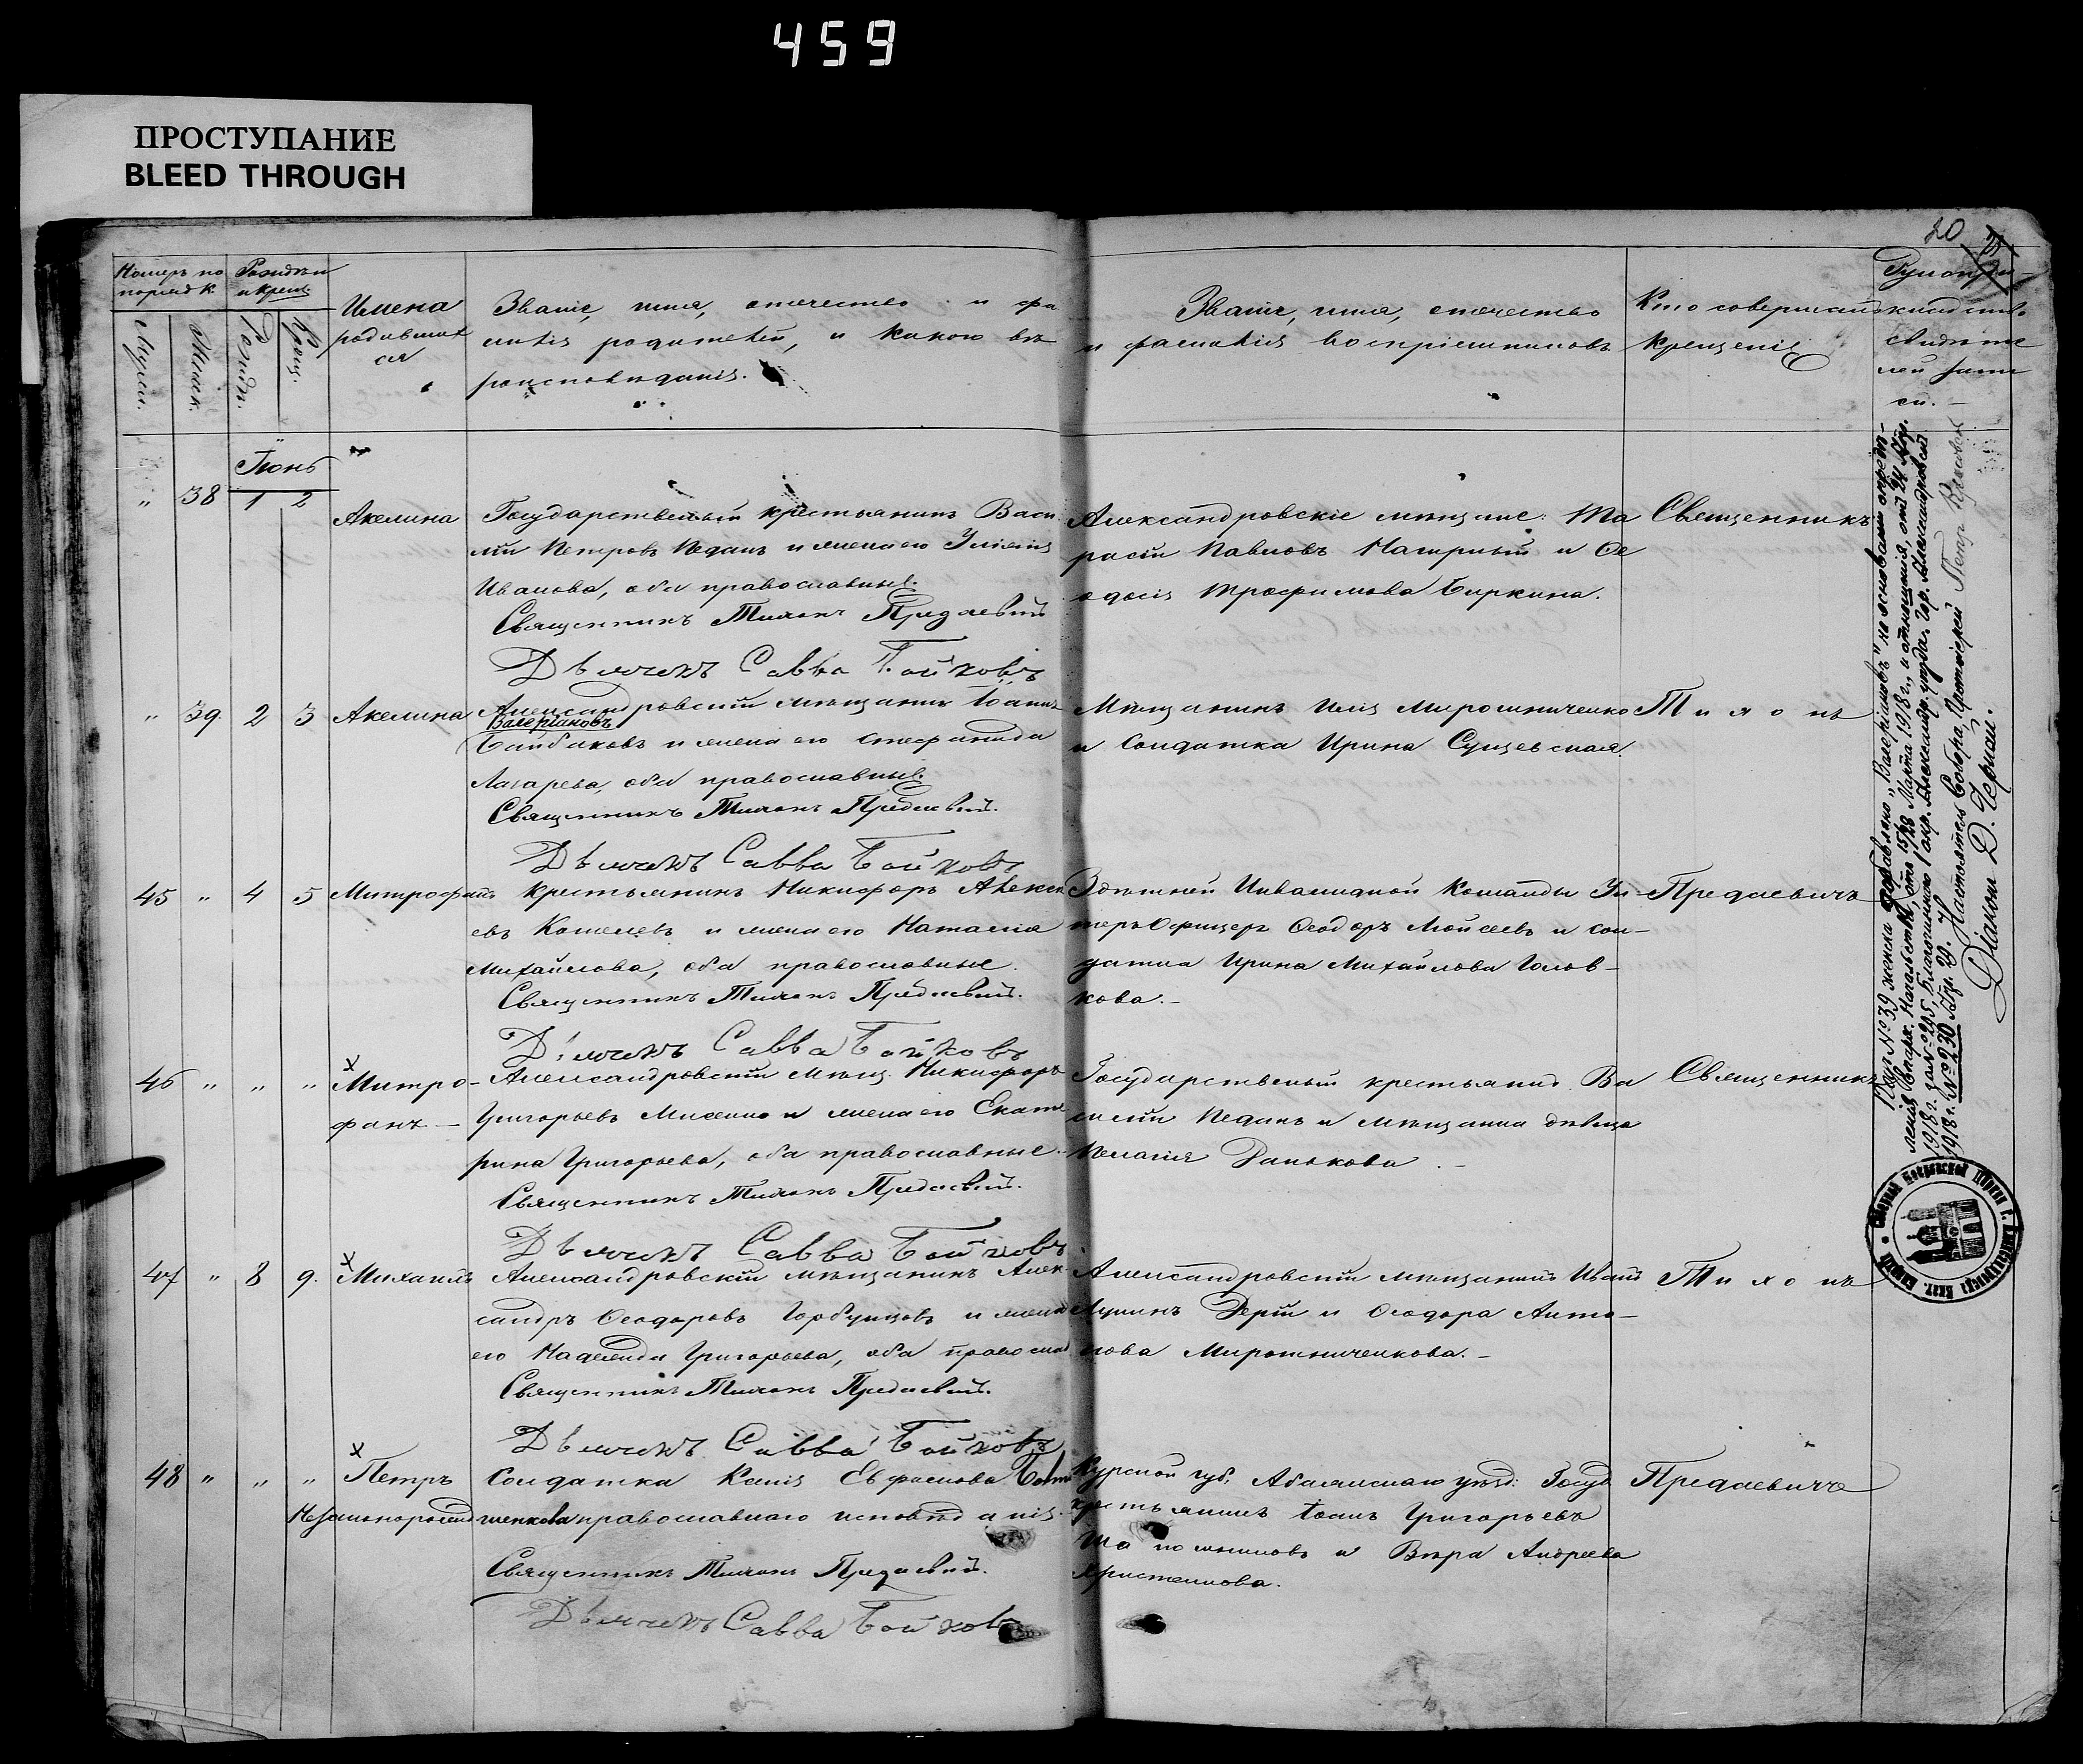 459
ПРОСТУПАНИЕ
BLEED THROUGH
20
Номеръ по порядк.
Рожден. и крещ.
Имена родившихся
Званіе, имя, отечество и фа
милія родителей, и какого вѣ
роисповѣданія.
Званіе, имя, отечество
и фамилія воспріемниковъ
Кто совершалъ
крещеніе
Рукопри-
кладство
свидѣте
лей запи
си.
Мужск.
Женск.
Рожд.
Крещ.
Іюнь
" 38 1 2 Акилина
Государственый крестьянинъ Васи
лій Петровъ Педанъ и жена его Іуліанія
Иванова, оба православные.
Священникъ Тихонъ Предаевичъ
Дьячекъ Савва Бойковъ
Александровскіе мѣщане: Та
расій Павловъ Нагирный и Ѳе
одосія Трофимова Биркина.
Священникъ
" 39. 2 3 Акилина
Александровскій мѣщанинъ Іоаннъ
Валеріановъ
Байбаковъ и жена его Стефанида
Лазарева, оба православные.
Священникъ Тихонъ Предаевичъ.
Дьячекъ Савва Бойковъ
Мѣщанинъ Илія Мирошниченко
и Солдатка Ирина Сущевская.
Тихонъ
45 " 4 5 Митрофанъ
крестьянинъ Никифоръ Алексѣ
евъ Кошелевъ и жена его Наталія
Михайлова, оба православные.
Священникъ Тихонъ Предаевичъ.
Дьячекъ Савва Бойковъ
Здѣшней Инвалидной Команды Ун-
теръ Офицеръ Ѳеодоръ Моисеевъ и сол-
датка Ирина Михайлова Голов-
кова.-
Предаевичъ
46 " " " Митро-
фанъ
Александровскій мѣщ. Никифоръ
Григорьевъ Михно и жена его Екате
рина Григорьева, оба православные.
Священникъ Тихонъ Предаевичъ.
Дьячекъ Савва Бойковъ
Государственый крестьянин. Ва
силій Педанъ и мѣщанка дѣвица
Пелагія Данькова.-
Священникъ
47 " 8 9. Михаилъ
Александровскій мѣщанинъ Алек
сандръ Ѳеодоровъ Горбунцовъ и жена
его Надежда Григорьева, оба православ
Священникъ Тихонъ Предаевичъ.
Дьячекъ Савва Бойковъ
Александровскій мѣщанинъ Иванъ
Лукинъ Дерій и Ѳеодора Анто-
нова Мирошниченкова.-
Тихонъ
48 " " " Петръ
Незаконорожд
Солдатка Ксенія Евфимова
православнаго исповѣданія.
Священникъ Тихонъ Предаевичъ.
Дьячекъ Савва Бойковъ
Курской губ. уѣзд: Госуд
крестьянинъ Іоанъ Григорьевъ
Шаповаловъ и Вѣра Андреева
Христенкова.
Предаевичъ
№ 39 добавлено „Валеріановъ" на основаніи опредѣ-
ленія Епарх. Начальства, отъ 15/28 Марта 1918 г., и отношенія, отъ 24 Апр.
1918 г. за № 205, Благочиннаго 1 окр. Александр. уѣзда. Гор. Александровскъ
1918 г. № 230 Настоятель Собора, Протоіерей Петръ
Діаконъ Д. Чернай.